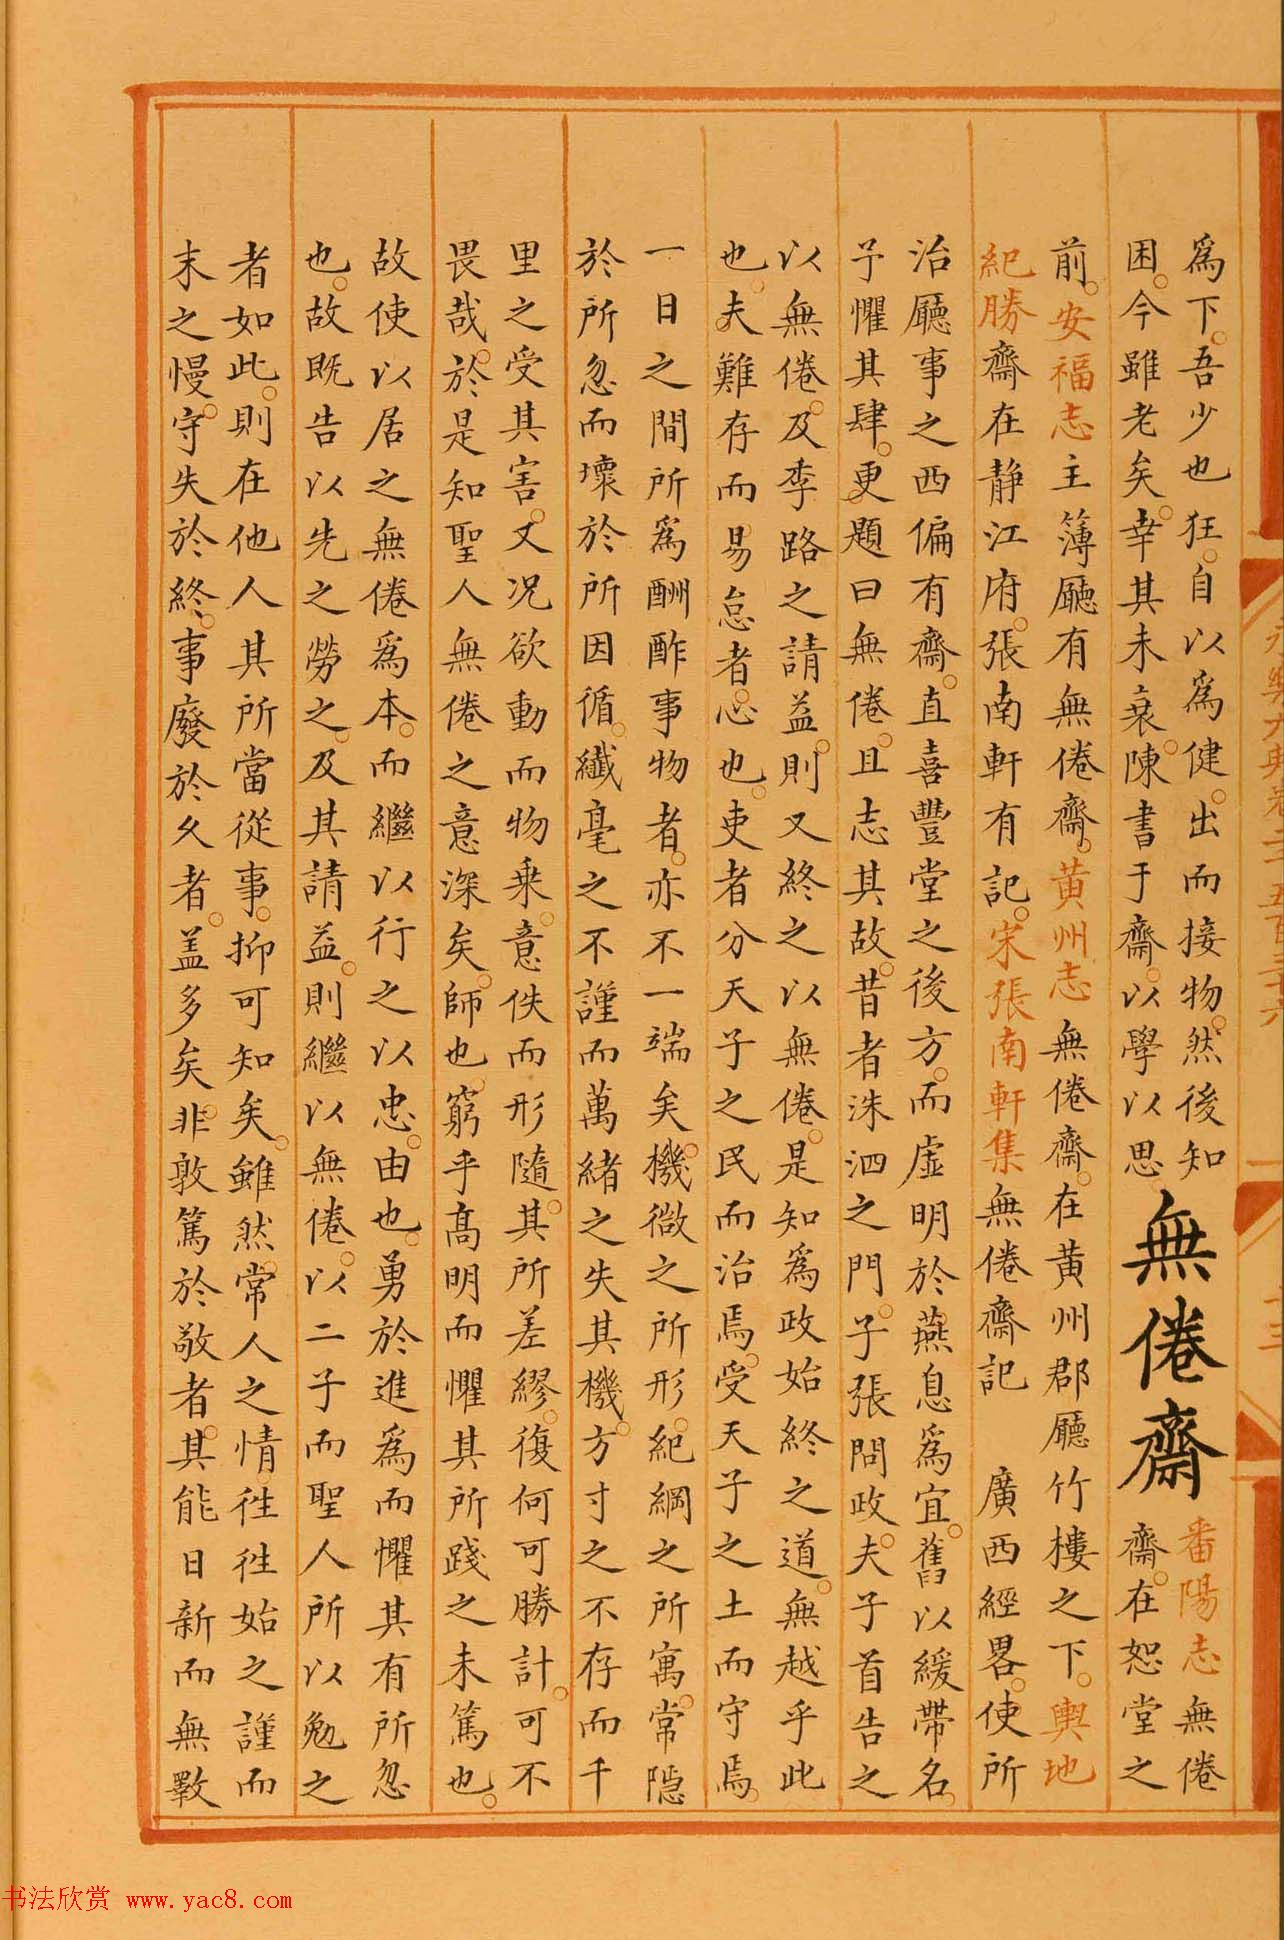 爲下。吾少也狂。自以爲健。出而接物。然後知
困。今雖老矣。幸其未衰。陳書于齋。以學以思
無倦齋
番陽志無倦
齋。在恕堂之
前。安福志主簿廳有無倦齋。黄州志無倦齋。在黄州郡廳竹樓之下。輿地
紀勝齋在静江府。張南軒有記。宋張南軒集無倦齋記 廣西經畧。使所
治廳事之西偏有齋。直喜豐堂之後方。而虚明於燕息爲宜。舊以緩帶名。
予懼其肆。更題曰無倦。且志其故。昔者洙泗之門。子張問政。夫子首告之
以無倦。及季路之請益。則又終之以無倦。是知爲政始終之道。無越乎此
也。夫難存而易怠者。心也。吏者分天子之民而治焉。受天子之土而守焉。
一日之間所爲酬酢事物者。亦不一端矣。機微之所形。紀綱之所寓。常隠
於所忽而壞於所因循。纎毫之不謹而萬緒之失其機。方寸之不存而千
里之受其害。又况欲動而物乘。意佚而形隨。其所差繆。復何可勝計。可不
畏哉。於是知聖人無倦之意深矣。師也。窮乎髙明而懼其所踐之未篤也。
故使以居之無倦爲本。而繼以行之以忠。由也。勇於進爲而懼其有所忽
也。故既告以先之勞之。及其請益。則繼以無倦。以二子而聖人所以勉之
者如此。則在他人其所當從事。抑可知矣。雖然。常人之情。徃徃始之謹而
末之慢。守失於終。事廢於久者。盖多矣。非敦篤於敬者。其能日新而無斁
永樂大典卷二千五百三十六
十三
书法欣赏 www.yac8.com